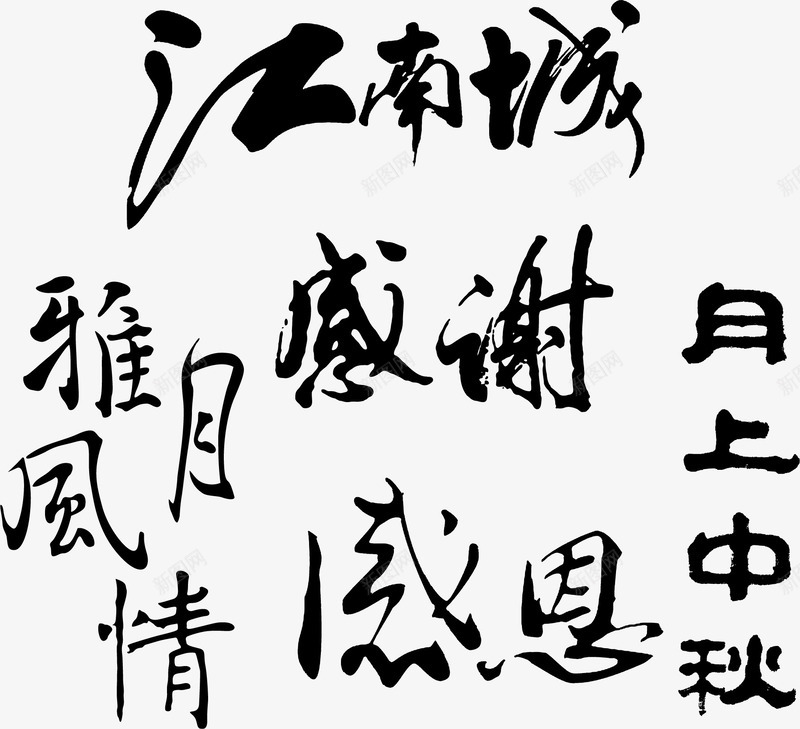 江南城
感谢
雅月風情
感恩
月上中秋
新图网